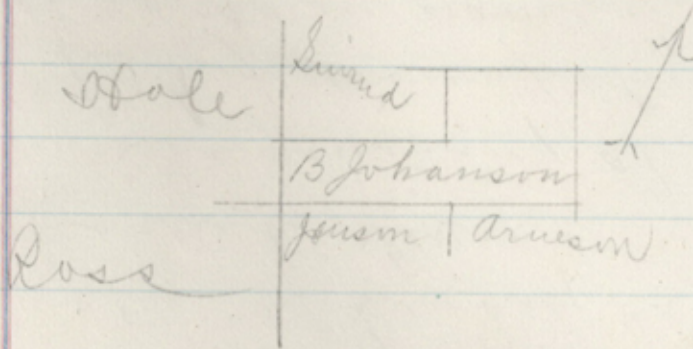 Hole
B Johanson
Jenson Arneson
Ross